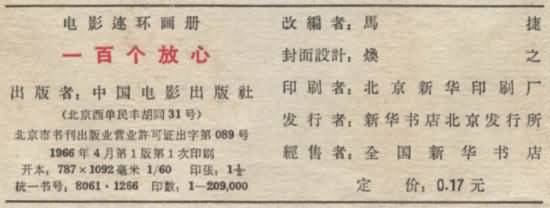 电影连环画册
一百个放心
出版者：中国电影出版社
（北京西单民丰胡同31号）
北京市书刊出版业营业許可証出字第089号
1966年4月第1版第1次印刷
开本：787×1092毫米 1/60 印張：1½
統一书号：8061·1266 印数：1—209,000
改編者：馬捷
封面設計：煥之
印刷者：北京新华印刷厂
发行者：新华书店北京发行所
經售者：全国新华书店
定价：0.17元